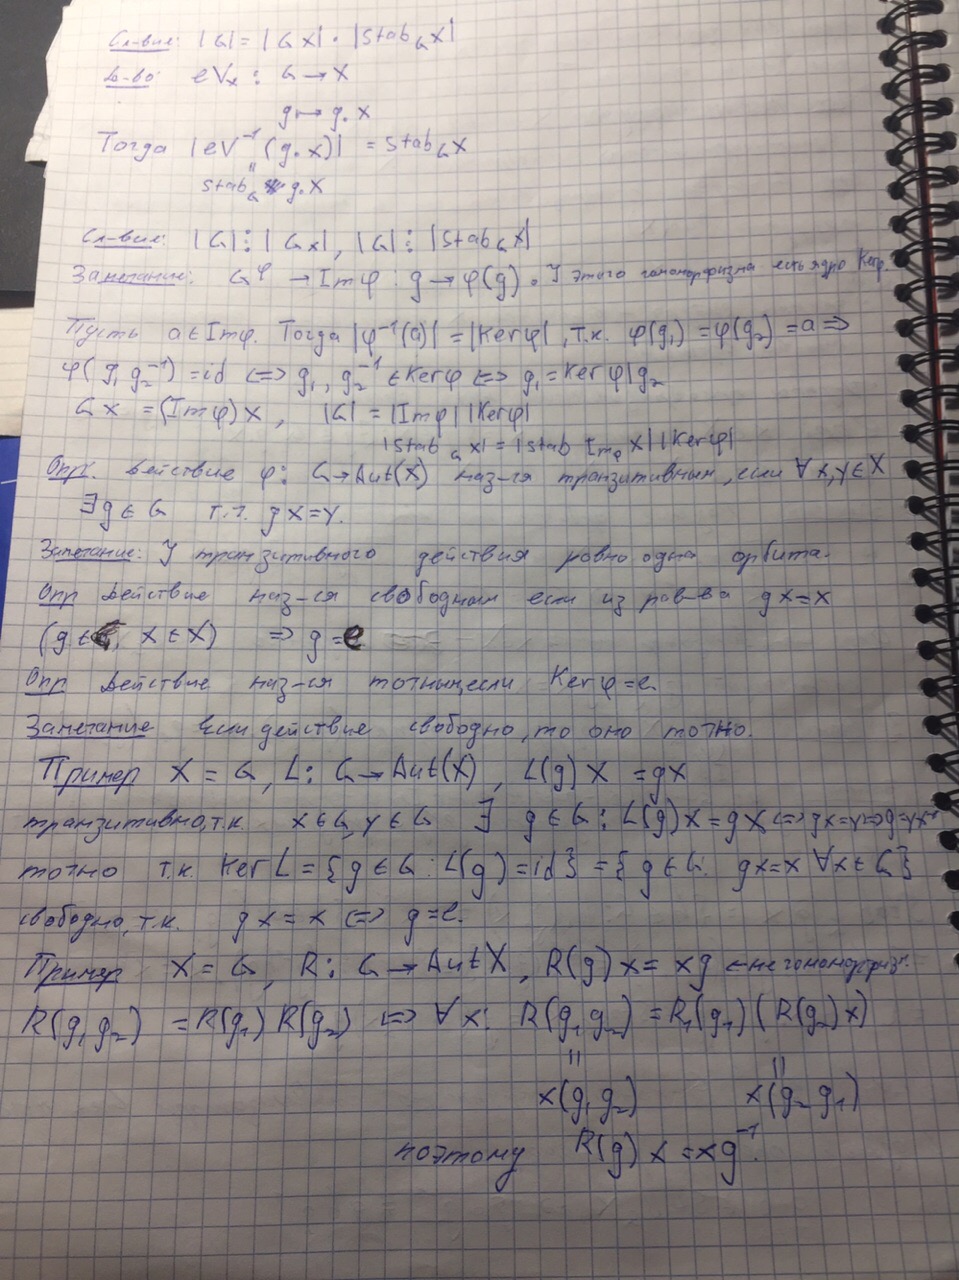 Сл-вие: |G| = |Gx| · |Stab_G x|
Д-во: eVₓ : G → X
g ↦ g.x
Тогда |eV⁻¹(g.x)| = Stab_G x
"
Stab_G g.x
Сл-вие: |G| ⋮ |Gx|, |G| ⋮ |Stab_G x|
Замечание: G^φ → Imφ : g → φ(g). У этого гомоморфизма есть ядро Kerφ.
Пусть a ∈ Imφ. Тогда |φ⁻¹(a)| = |Kerφ|, т.к. φ(g₁) = φ(g₂) = a ⇒
φ(g₁ g₂⁻¹) = id ⇔ g₁, g₂⁻¹ ∈ Kerφ ⇔ g₁ = Kerφ|g₂
Gx = (Imφ)x, |G| = |Imφ| |Kerφ|
|Stab_G x| = |Stab_Imφ x| |Kerφ|
Опр. Действие φ: G → Aut(X) наз-ся транзитивным, если ∀ x,y ∈ X
∃g ∈ G т.ч. gx = y.
Замечание: У транзитивного действия ровно одна орбита.
Опр Действие наз-ся свободным если из рав-ва gx = x
(g ∈ G, x ∈ X) ⇒ g = e
Опр Действие наз-ся точным, если Kerφ = e.
Замечание Если действие свободно, то оно точно.
Пример X = G, L: G → Aut(X), L(g)x = gx
транзитивно, т.к. x ∈ G, y ∈ G ∃ g ∈ G : L(g)x = gx ⇔ gx = y ⇔ g = yx⁻¹
точно т.к. Ker L = {g ∈ G : L(g) = id} = {g ∈ G: gx = x ∀x ∈ G}
свободно, т.к. gx = x ⇔ g = e.
Пример X = G, R: G → AutX, R(g)x = xg ← не гомоморфизм.
R(g₁g₂) = R(g₁)R(g₂) ⇔ ∀x: R(g₁g₂) = R₁(g₁)(R(g₂)x)
|| ||
x(g₁g₂) x(g₂g₁)
поэтому R(g)x = xg⁻¹.